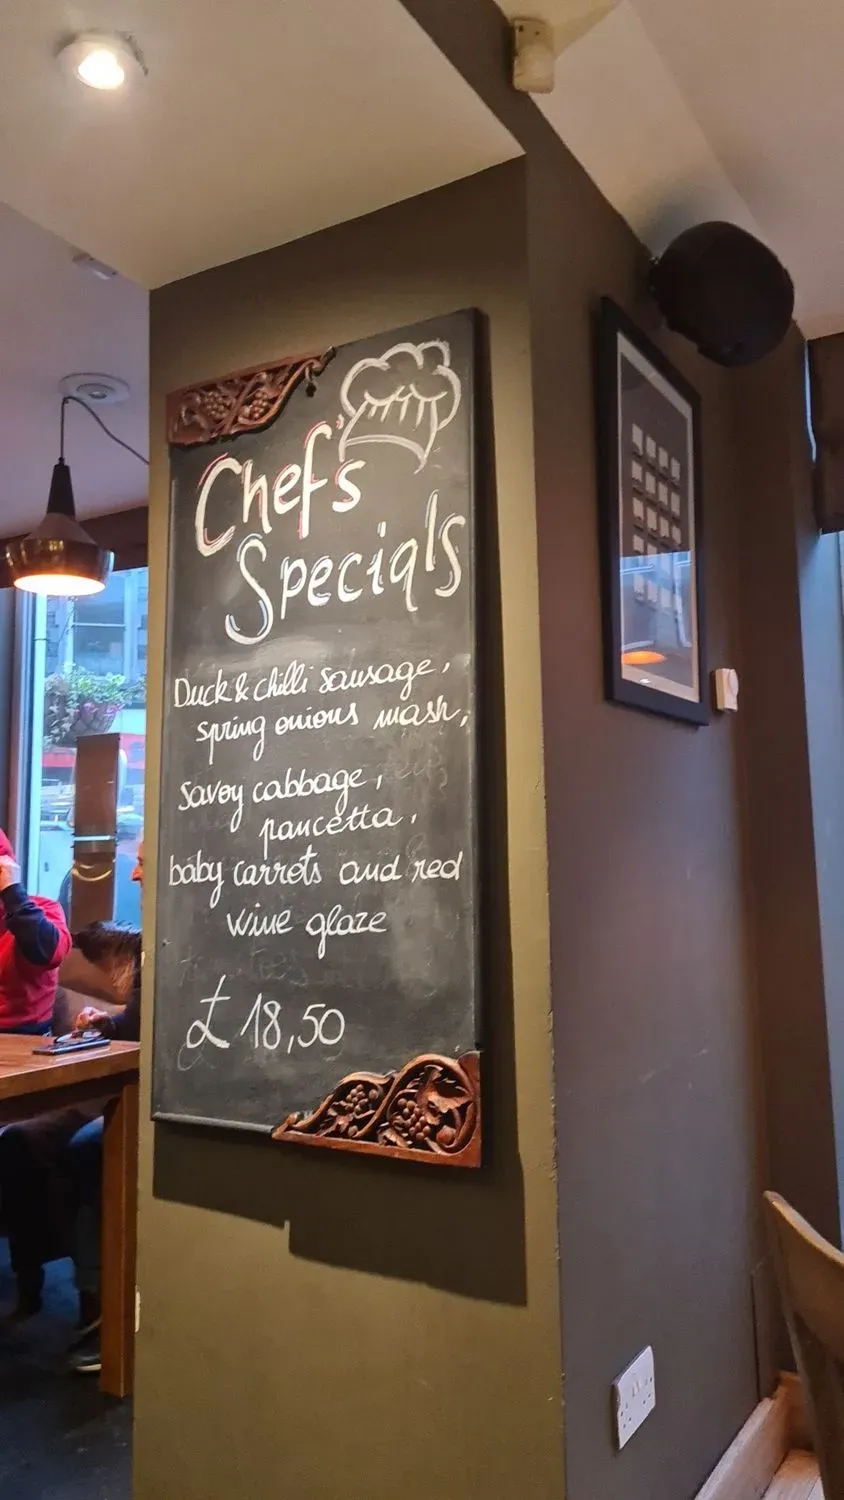 Chef's
Specials
Duck & chilli sausage,
spring onions mash,
Savoy cabbage,
pancetta,
baby carrots and red
wine glaze
£18,50